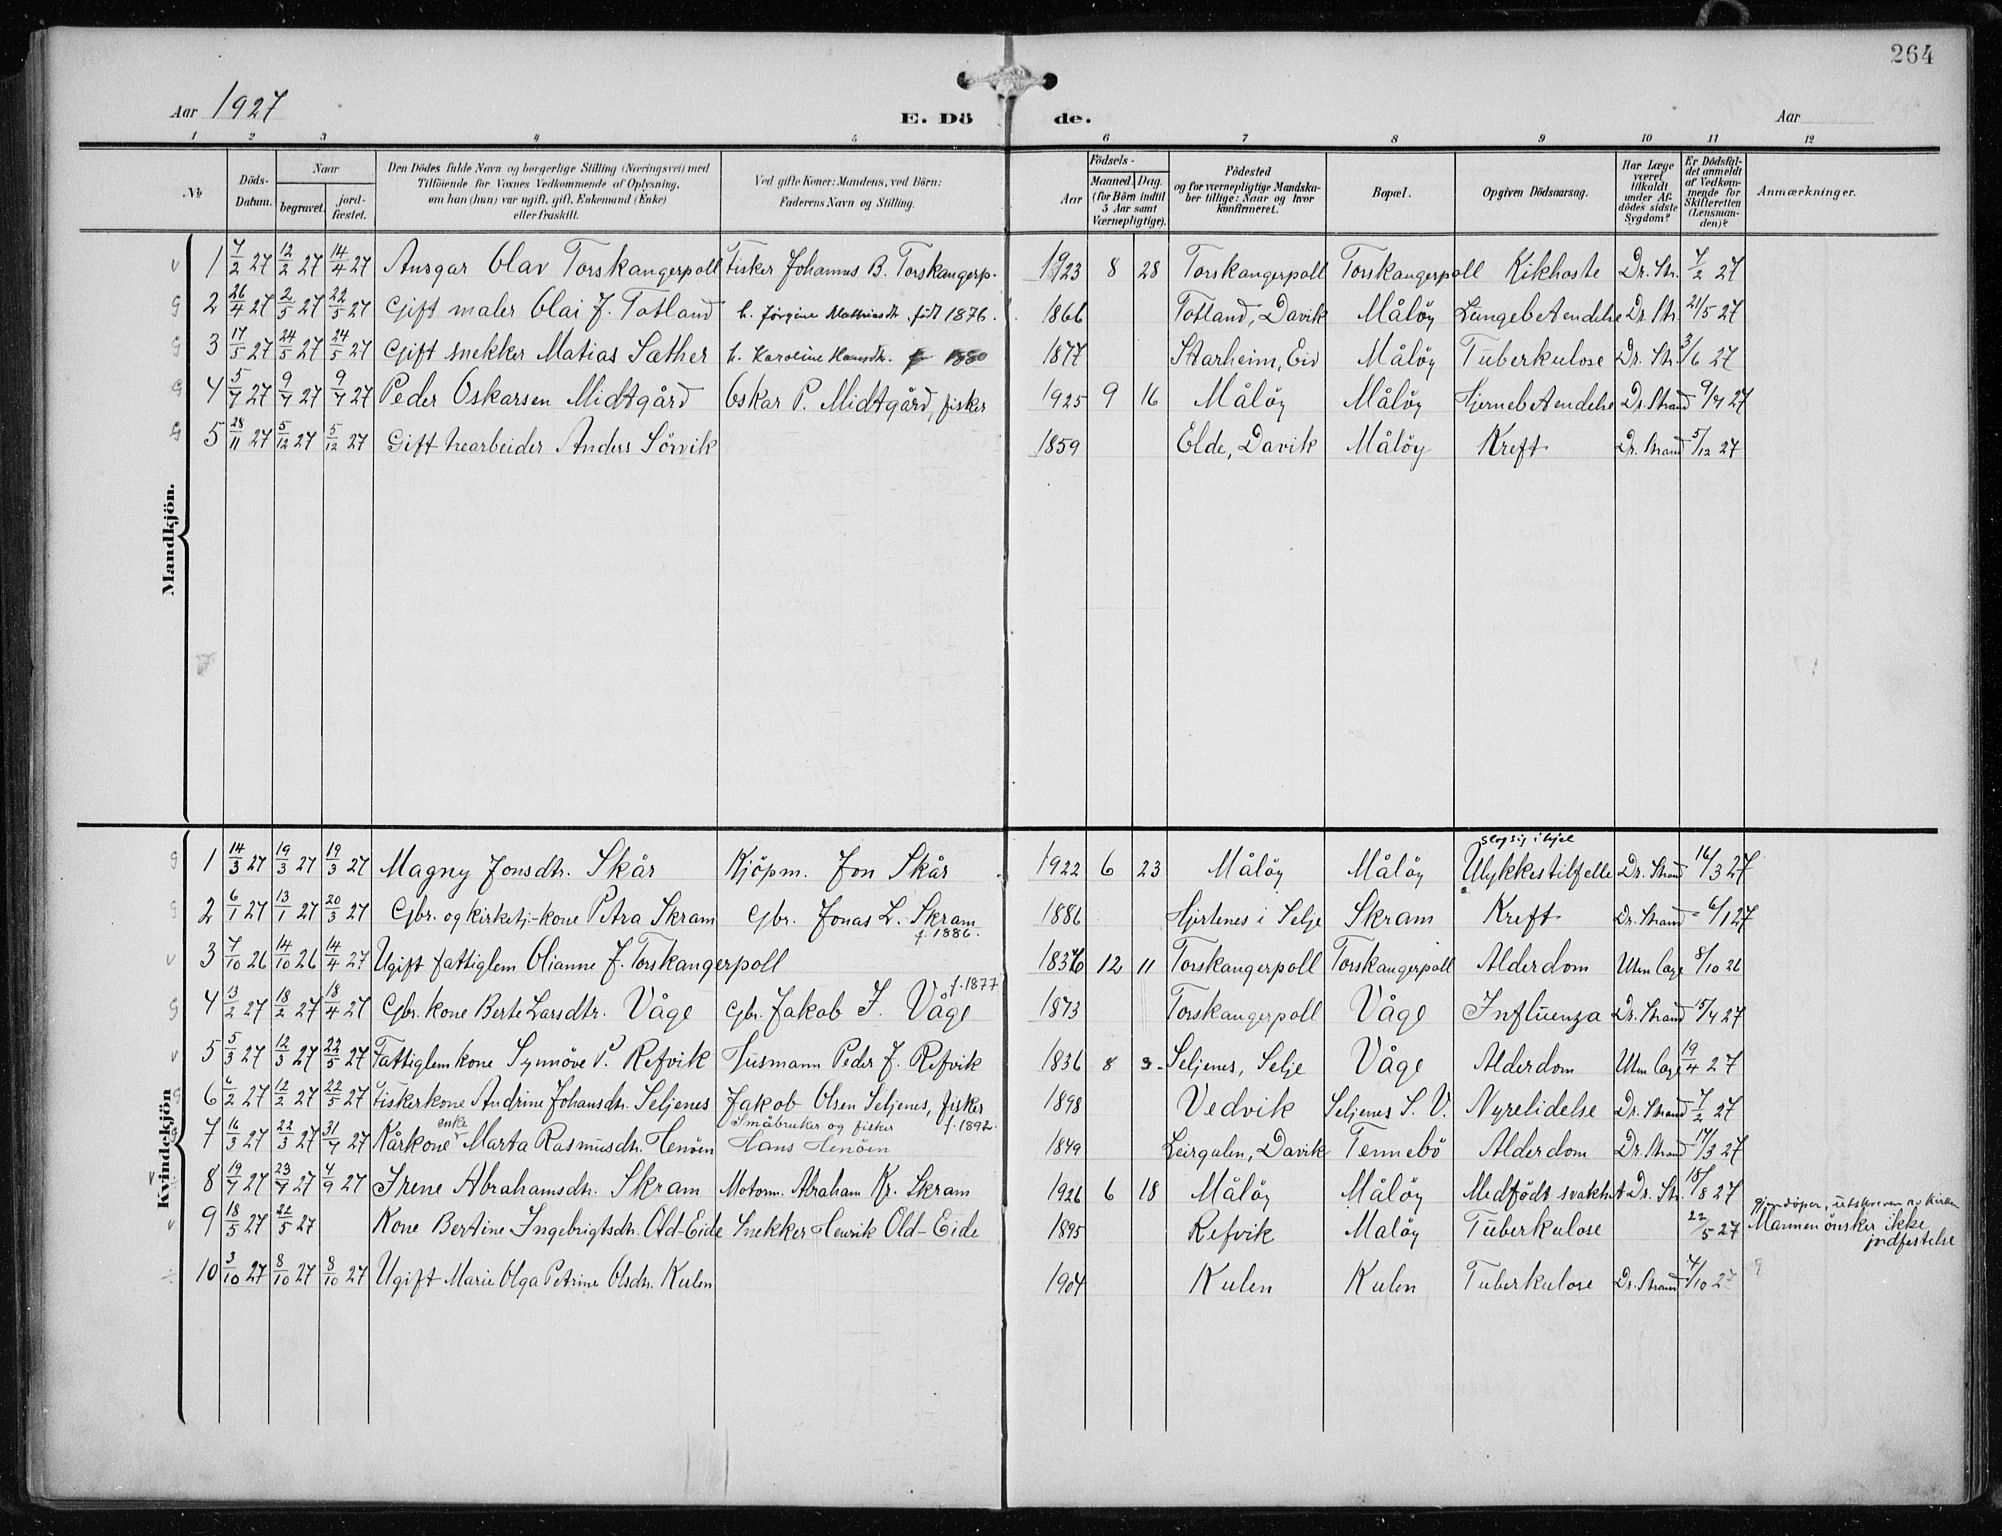 264
Aar 1927 E. Dö de. Aar
1 2 3 4 5 6 7 8 9 10 11 12
No
Döds-Datum.
Naar
begravet.
jord-fæstet.
Den Dödes fulde Navn og borgerlige Stilling (Næringsvei) med
Tilföiende for Voxnes Vedkommende af Oplysning,
om han (hun) var ugift, gift, Enkemand (Enke)
eller fraskilt.
Ved gifte Koner: Mandens, ved Börn:
Faderens Navn og Stilling.
Födsels-
Aar
Maaned. Dag
(for Börn indtil
5 Aar samt
Værnepligtige).
Födested
og for værnepligtige Mandska-
ber tillige: Naar og hvor
konfirmeret.
Bopæl.
Opgiven Dödsaarsag.
Har Læge
været
tilkaldt
under Af-
dödes sidste
Sygdom?
Er Dödsfal-
det anmeldt
af Vedkom-
mende for
Skifteretten
(Lensman-
den)?
Anmærkninger.
Mandkjön.
v 1 7/2 27 12/2 27 14/4 27 Ansgar Olav Torskangerpoll Fisker Johannes B. Torskangerp. 1923 8 28 Torskangerpoll Torskangerpoll Kikhoste Dr. Str. 7/2 27
g 2 26/4 27 2/5 27 22/5 27 Gift maler Olai J. Totland h. Jörgine Mathiasdtr. født 1876. 1866 Totland, Davik Måløy Lungebetendelse Dr. Str. 21/5 27
g 3 17/5 27 24/5 27 24/5 27 Gift snekker Matias Sæther h. Karoline Hansdtr. f 1880 1877 Starheim, Eid Måløy Tuberkulose Dr. Str. 3/6 27
g 4 5/7 27 9/7 27 9/7 27 Peder Oskarsen Midtgård Oskar P. Midtgård, fisker 1925 9 16 Måløy Måløy Hjernebetendelse Dr. Strand 9/7 27
g 5 28/11 27 5/12 27 5/12 27 Gift trearbeider Anders Sörvik 1859 Elde, Davik Måløy Kreft Dr. Strand 5/12 27
Kvindekjön
slog sig ihjel
g 1 14/3 27 19/3 27 19/3 27 Magny Jonsdtr. Skår Kjöpm. Jon Skår 1922 6 23 Måløy Måløy Ulykkestilfelle Dr. Strand 16/3 27
g 2 6/1 27 13/1 27 20/3 27 Gbr. og kirketj.-kone Petra Skram Gbr. Jonas L. Skram f. 1886. 1886 Hjertenes i Selje Skram Kreft Dr. Strand 6/1 27
v 3 7/10 26 14/10 26 14/4 27 Ugift fattiglem Olianne J. Torskangerpoll 1836 12 11 Torskangerpoll Torskangerpoll Alderdom Uten læge 8/10 26
g 4 13/2 27 18/2 27 18/4 27 Gbr. kone Berte Larsdtr. Våge Gbr. Jakob J. Våge f. 1877 1873 Torskangerpoll Våge Influenza Dr. Strand 15/4 27
v 5 5/3 27 12/3 27 22/5 27 Fattiglemkone Synnöve P. Refvik Husmann Peder J. Refvik 1836 8 3 Seljenes, Selje Våge Alderdom Uten læge 19/4 27
g 6 6/2 27 12/2 27 22/5 27 Fiskerkone Andrine Johansdtr. Seljenes Jakob Olsen Seljenes, fisker f. 1892. 1898 Vedvik Seljenes S. V. Nyrelidelse Dr. Strand 7/2 27
g 7 16/3 27 22/3 27 31/7 27 Kårkone enke Marta Rasmusdtr. Henöen Småbruker og fisker Hans Henöen 1849 Leirgulen, Davik Tennebö Alderdom Dr. Strand 17/3 27
v 8 19/7 27 23/7 27 4/9 27 Irene Abrahamsdtr. Skram Motorm. Abraham Kr. Skram 1926 6 18 Måløy Måløy Medfödt svakhet Dr. Str. 18/8 27
v 9 18/5 27 22/5 27 Kone Bertine Ingebrigtsdtr. Old-Eide Snekker Henrik Old-Eide 1895 Refvik Måløy Tuberkulose 22/5 27 gjendöper, utskreven av kirken
Mannen önsker ikke
jordfestelse
10 3/10 27 8/10 27 8/10 27 Ugift Marie Olga Petrine Olsdtr. Kulen 1904 Kulen Kulen Tuberkulose Dr. Strand 4/10 27 g